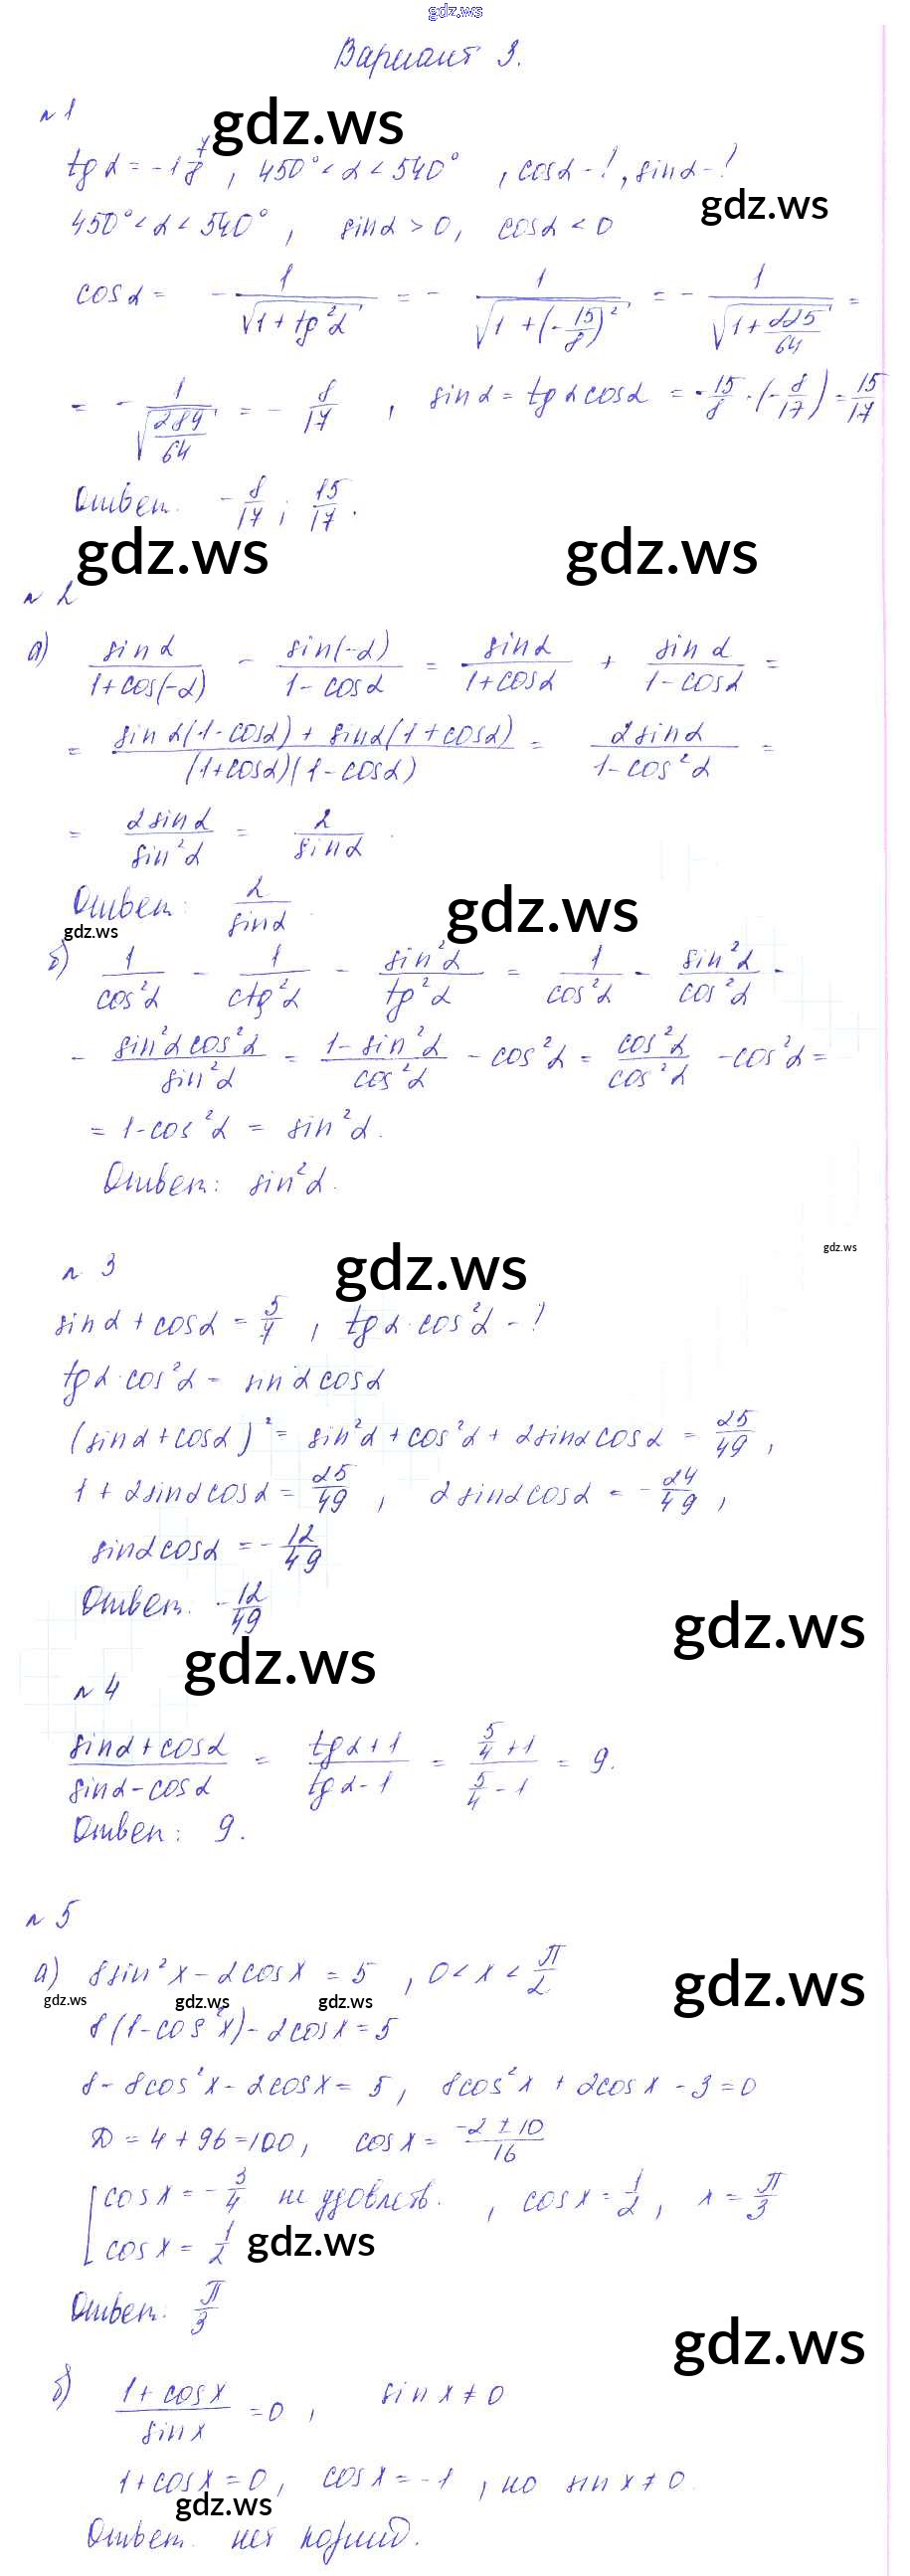 gdz.ws
Вариант 3.
№ 1
gdz.ws
tg α = -1 7/8 , 450° < α < 540° , cos α - ! , sin α - !
gdz.ws
450° < α < 540° , sin α > 0, cos α < 0
cos α = - 1/√(1 + tg²α) = - 1/√(1 + (-15/8)²) = - 1/√(1 + 225/64) =
= - 1/√(289/64) = - 8/17 , sin α = tg α cos α = -15/8 · (-8/17) = 15/17
Ответ. -8/17 ; 15/17.
gdz.ws gdz.ws
№ 2
а) sin α/(1+cos(-α)) - sin(-α)/(1-cos α) = sin α/(1+cos α) + sin α/(1-cos α) =
= (sin α(1-cos α) + sin α(1+cos α))/((1+cos α)(1-cos α)) = 2 sin α/(1-cos²α) =
= 2 sin α/sin²α = 2/sin α .
Ответ: 2/sin α .
gdz.ws gdz.ws
б) 1/cos²α - 1/ctg²α - sin²α/tg²α = 1/cos²α - sin²α/cos²α -
- sin²α cos²α/sin²α = (1-sin²α)/cos²α - cos²α = cos²α/cos²α - cos²α =
= 1-cos²α = sin²α.
Ответ: sin²α.
gdz.ws gdz.ws
№ 3
sin α + cos α = 5/7 , tg α · cos²α - !
tg α · cos²α = sin α cos α
(sin α + cos α)² = sin²α + cos²α + 2 sin α cos α = 25/49 ,
1 + 2 sin α cos α = 25/49 , 2 sin α cos α = -24/49 ,
sin α cos α = -12/49
Ответ. -12/49
gdz.ws
gdz.ws
№ 4
(sin α + cos α)/(sin α - cos α) = (tg α + 1)/(tg α - 1) = (5/4 + 1)/(5/4 - 1) = 9.
Ответ: 9.
№ 5
а) 8 sin²x - 2 cos x = 5 , 0 < x < π/2
gdz.ws
gdz.ws gdz.ws gdz.ws
8(1-cos²x) - 2cos x = 5
8 - 8cos²x - 2cos x = 5, 8cos²x + 2cos x - 3 = 0
D = 4 + 96 = 100, cos x = (-2 ± 10)/16
[cos x = -3/4 не удовлетв. , cos x = 1/2 , x = π/3
[cos x = 1/2
gdz.ws
Ответ. π/3
gdz.ws
б) (1 + cos x)/sin x = 0 , sin x ≠ 0
1 + cos x = 0, cos x = -1 , но sin x ≠ 0.
gdz.ws
Ответ. нет корней.